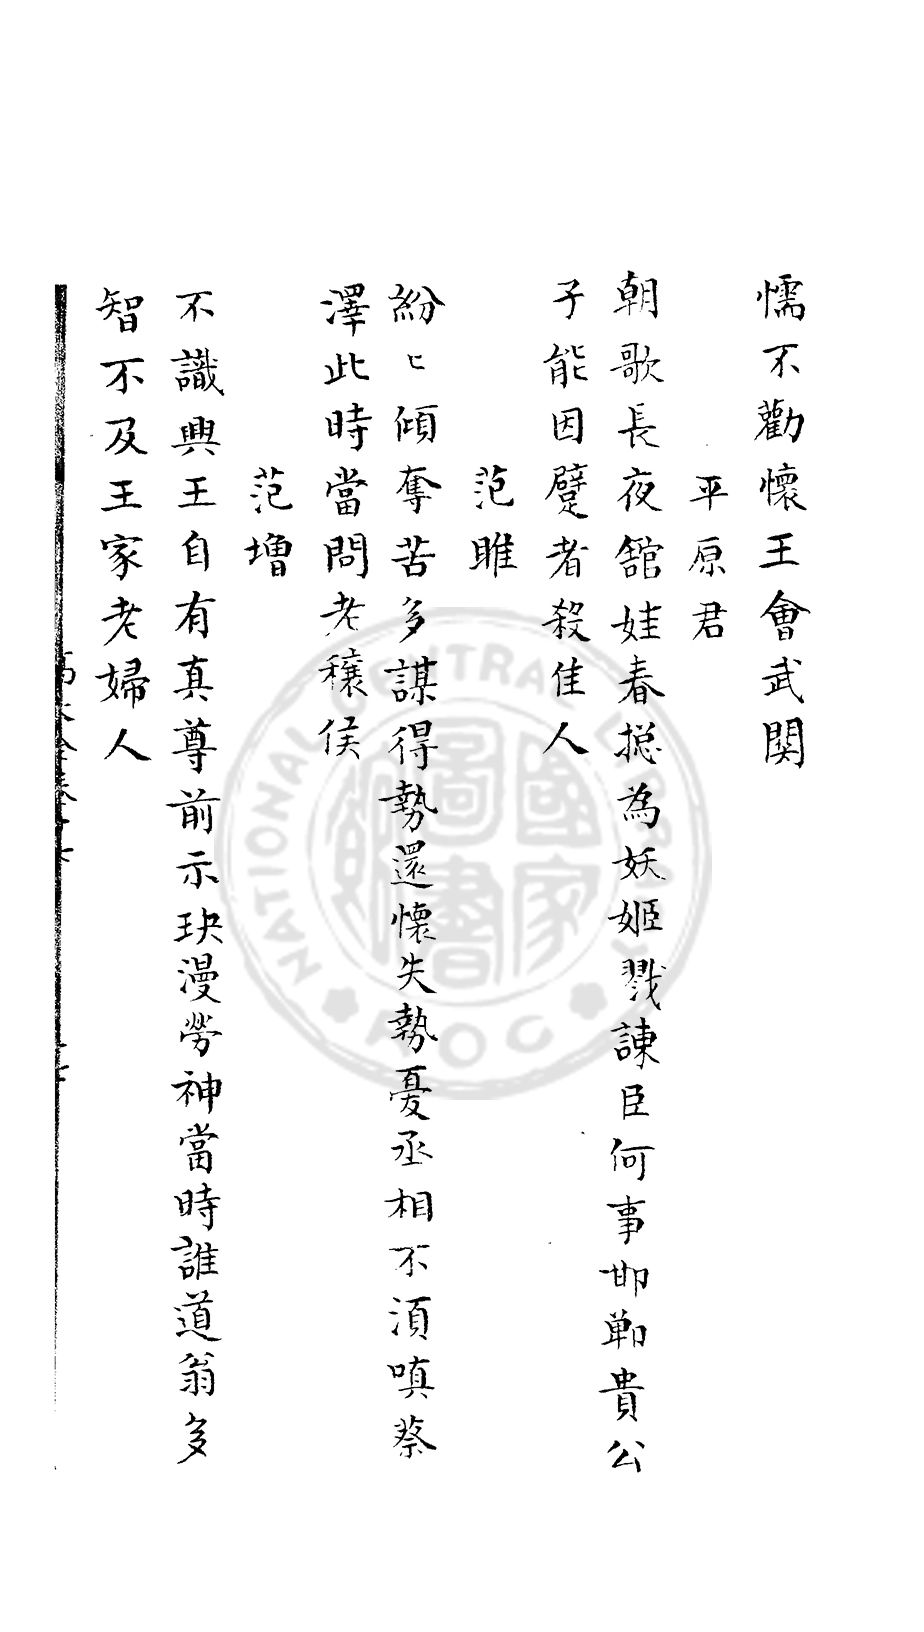 懦不勸懷王會武関
平原君
朝歌長夜舘娃春揔為妖姬戮諫臣何事邯鄲貴公
子能因躄者殺佳人
范雎
紛〻傾奪苦多謀得勢還懷失勢憂丞相不湏嗔蔡
澤此時當問老穰侯
范増
不識興王自有真尊前示玦漫勞神當時誰道翁多
智不及王家老婦人
NATIONAL CENTRAL LIBRARY
ROC
國家圖書館